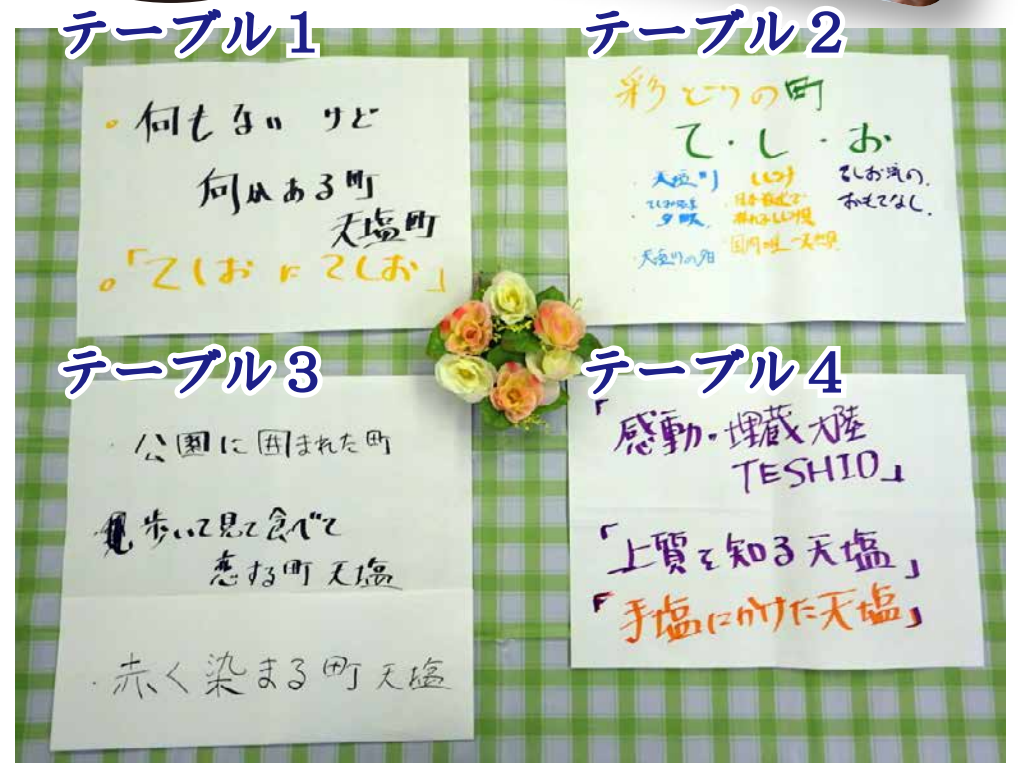 テーブル1
・何もないけど
何かある町
天塩町
・「てしおにてしお」
テーブル2
彩どりの町
て・し・お
・天塩町
夕映
・天塩川の夕日
しじみ
日本最北で
採れるしじみ
国内唯一天然
てしお流の
おもてなし
テーブル3
・公園に囲まれた町
歩いて見て食べて
恋する町 天塩
・赤く染まる町 天塩
テーブル4
「感動・埋蔵大陸
TESHIO」
「上質を知る天塩」
「手塩にかけた天塩」